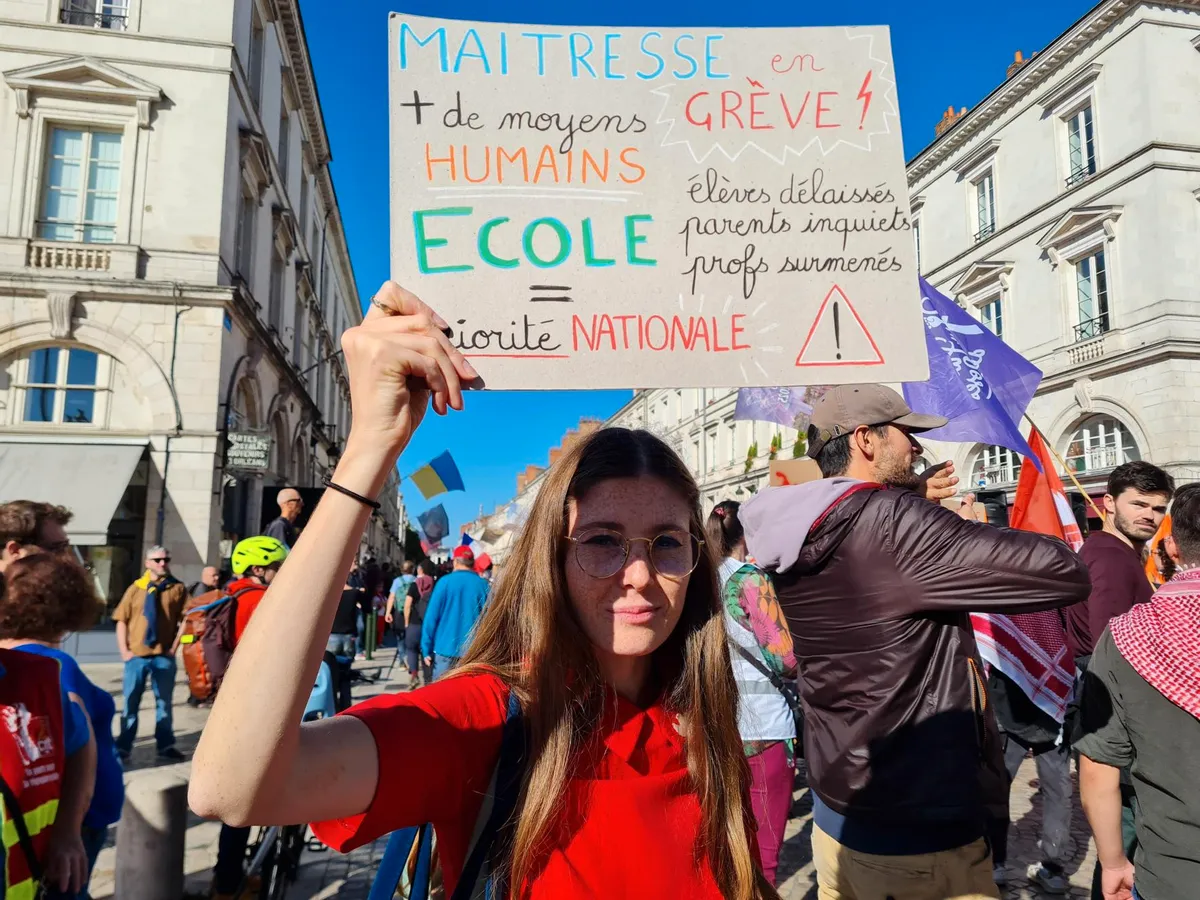 MAITRESSE en
GRÈVE !
+ de moyens
HUMAINS
ECOLE
=
iorité NATIONALE
élèves délaissés
parents inquiets
profs surmenés
!
CARTES POSTALES
SOUVENIRS
D'ORLÉANS